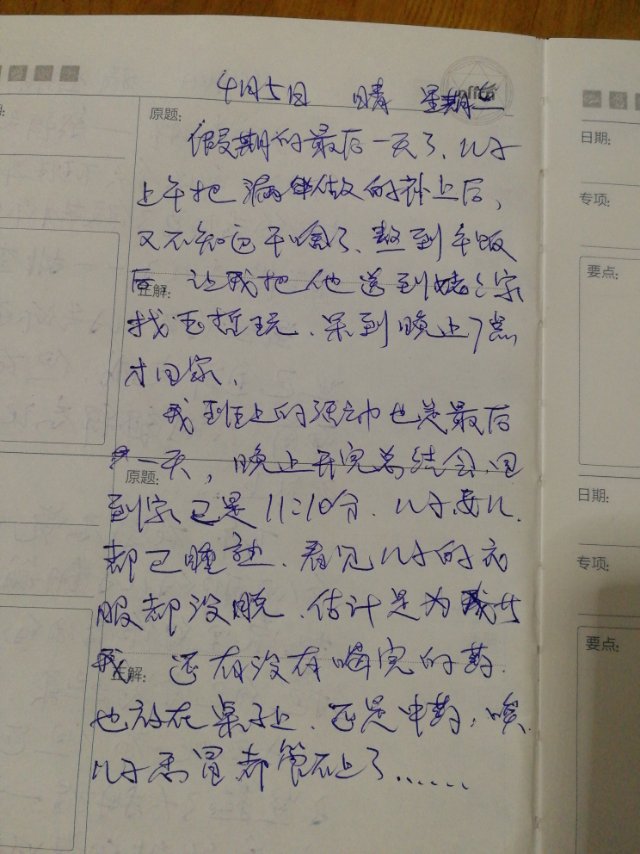 4月5日 晴 星期二
原题:
假期的最后一天了、儿子
上午把漏做的补上后,
又不知道干啥了、整到午饭
后 让我把他送到姥姥家
正解:
找玉哲玩、呆到晚上7点
才回家、
我班上的张帅也是最后
一天, 晚上开完总结会 回
原题:
到家已是11:10分、儿子妻儿
都已睡熟、看见儿子的衣
服都没脱、估计是为
我 还有没有喝完的药
正解:
也放在桌子上、还是中药, 唉
儿子感冒都管不上了......
日期:
专项:
要点:
日期:
专项:
要点: